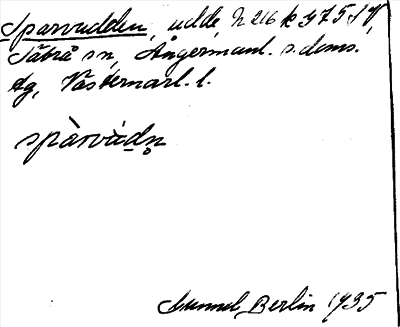 Sparvudden, udde, h 216 k 475 SV,
Säbrå sn, Ångermanl. s. doms.
tg, Västernorrl. l.
spàrvúdn̥
Gunnel Berlin 1935